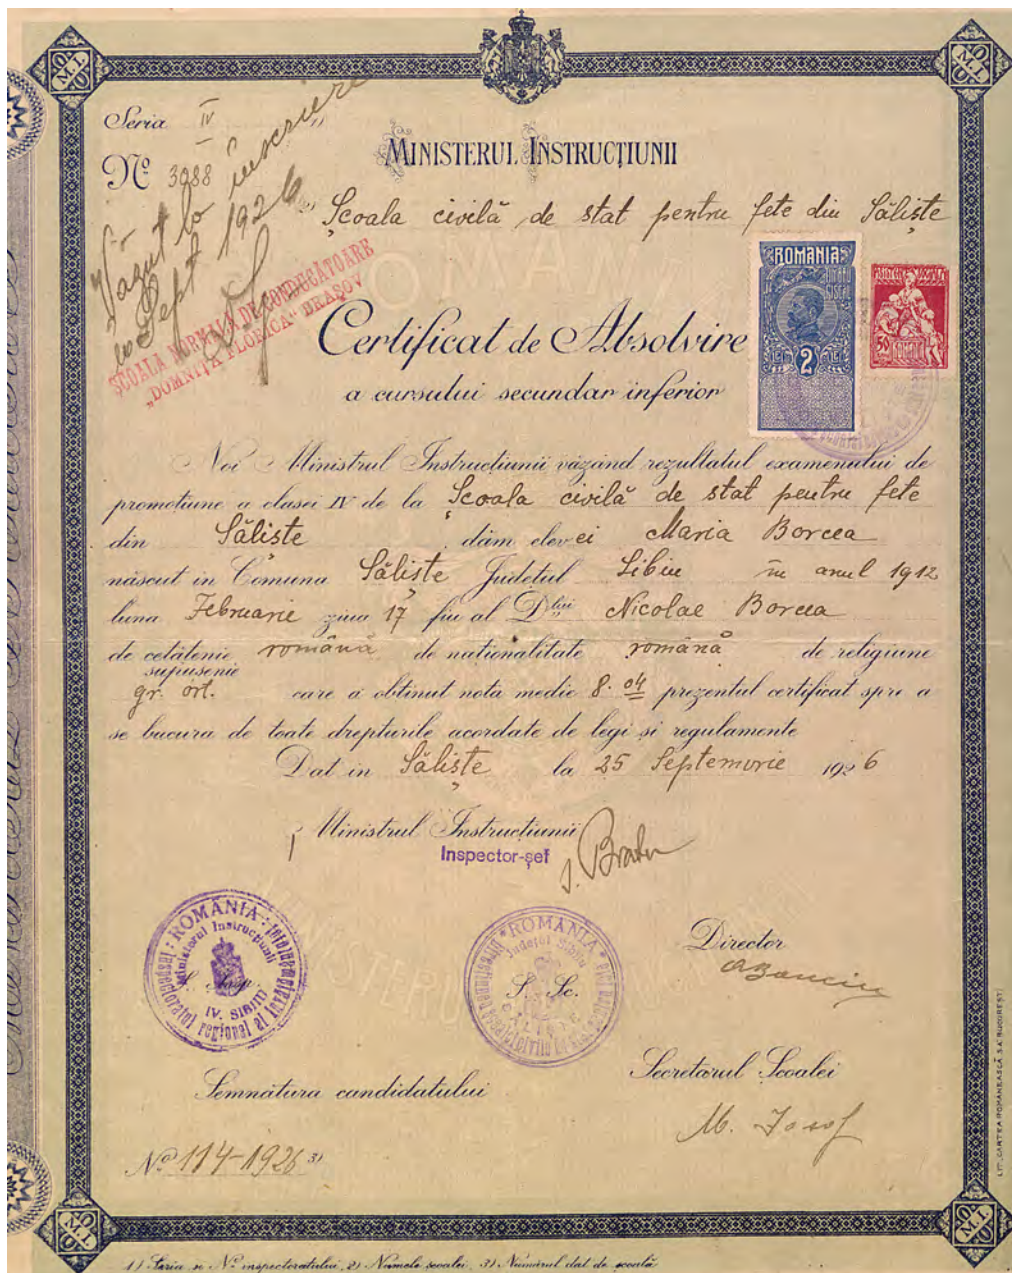 Seria IV 1)
No 3088
Văzut la înscriere
Sept 1926
ȘCOALA NORMALĂ DE CONDUCĂTOARE
„DOMNIȚA FLORICA" BRAȘOV
MINISTERUL INSTRUCȚIUNII
2) Școala civilă de stat pentru fete din Săliște
ROMANIA
TIMBRU FISCAL
2
LEI LEI
50
ROMANIA
Certificat de Absolvire
a cursului secundar inferior
Noi Ministrul Instrucțiunii văzând rezultatul examenului de
promoțiune a clasei IV de la Școala civilă de stat pentru fete
din Săliște dăm elevei Maria Borcea
născut in Comuna Săliște Județul Sibiu în anul 1912
luna Februarie ziua 17 fiu al Dlui Nicolae Borcea
de cetățenie română de naționalitate română de religiune
supușenie
gr. ort. care a obținut nota medie 8.04 prezentul certificat spre a
se bucura de toate drepturile acordate de legi și regulamente
Dat in Săliște la 25 Septemvrie 1926
Ministrul Instrucțiunii
Inspector-șef
I. Bratu
ROMÂNIA
Ministerul Instrucțiunii
Inspectoratul regional al Invățământului
IV. SIBIIU
ROMANIA
Județul Sibiu
Director
Secretarul Scoalei
M. Iosof
Semnătura candidatului
No 114-1926 3)
LIT. CARTEA ROMANEASCĂ S.A. BUCUREȘTI
1) Seria și No inspectoratului, 2) Numele școalei, 3) Numărul dat de școală